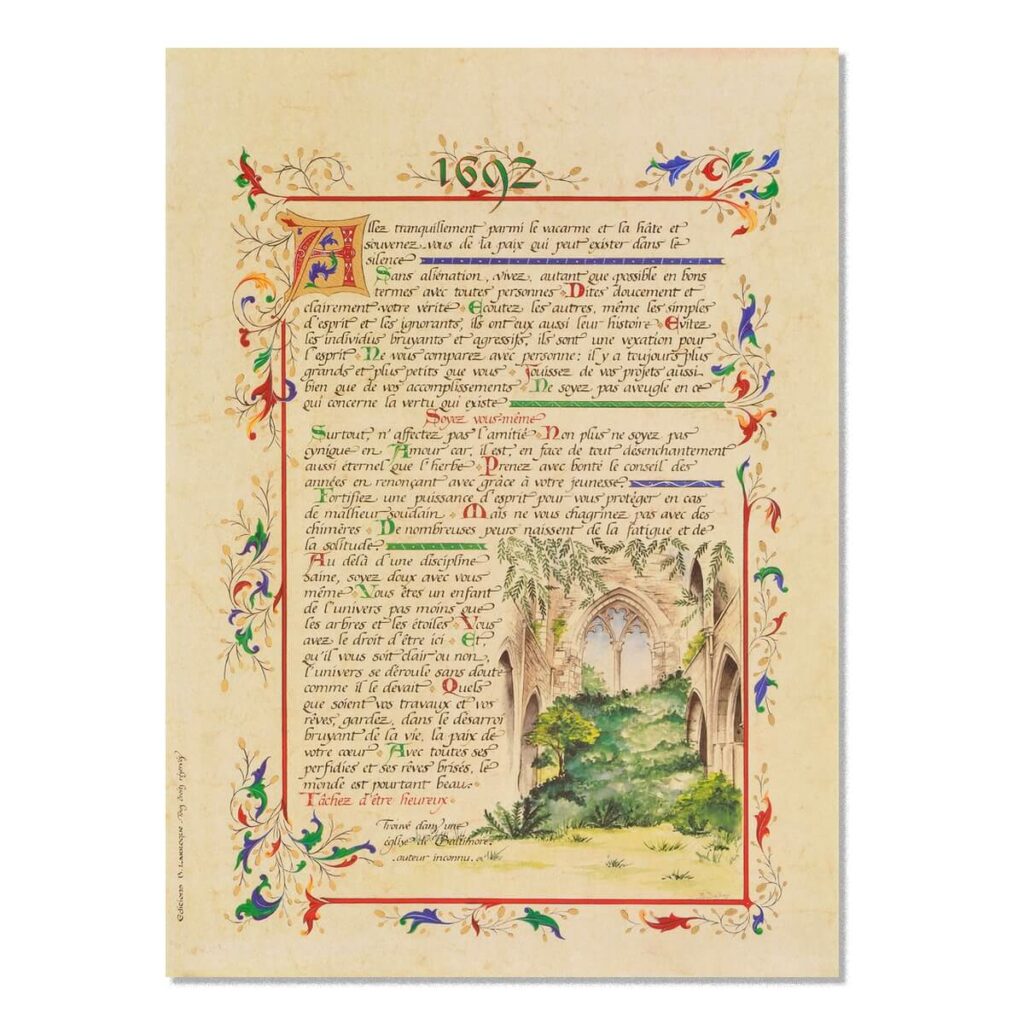 1692
Allez tranquillement parmi le vacarme et la hâte et
souvenez-vous de la paix qui peut exister dans le
silence
Sans aliénation, vivez, autant que possible en bons
termes avec toutes personnes Dites doucement et
clairement votre vérité Ecoutez les autres, même les simples
d'esprit et les ignorants, ils ont eux aussi leur histoire Evitez
les individus bruyants et agressifs, ils sont une vexation pour
l'esprit Ne vous comparez avec personne: il y a toujours plus
grands et plus petits que vous Jouissez de vos projets aussi
bien que de vos accomplissements Ne soyez pas aveugle en ce
qui concerne la vertu qui existe
Soyez vous-même
Surtout, n'affectez pas l'amitié Non plus ne soyez pas
cynique en Amour car, il est, en face de tout désenchantement
aussi éternel que l'herbe Prenez avec bonté le conseil des
années en renonçant avec grâce à votre jeunesse
Fortifiez une puissance d'esprit pour vous protéger en cas
de malheur soudain Mais ne vous chagrinez pas avec des
chimères De nombreuses peurs naissent de la fatigue et de
la solitude
Au delà d'une discipline
saine, soyez doux avec vous
même Vous êtes un enfant
de l'univers pas moins que
les arbres et les étoiles Vous
avez le droit d'être ici Et,
qu'il vous soit clair ou non,
l'univers se déroule sans doute
comme il le devait Quels
que soient vos travaux et vos
rêves, gardez, dans le désarroi
bruyant de la vie, la paix de
votre cœur Avec toutes ses
perfidies et ses rêves brisés, le
monde est pourtant beau
Tâchez d'être heureux
Trouvé dans une
église de Baltimore.
.auteur inconnu.
Editions O. LARROQUE